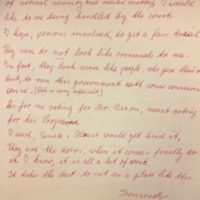 of national security and related matters, I would
like to me being handled by the courts.
I hope, persons involved, do get a fair trial
They seem to not look like criminals to me.
In fact, they look more like people, who gave their
best, to run this government with some common
sense. (This is my opinion)
As for me voting for Mr. Nixon, meant voting
for his Programs.
I said, Saide - Would get hind it,
They are the doers, when it comes finally to
it I know, it is all a lot of work.
It takes the best to sit in a place like this.
Sincerely